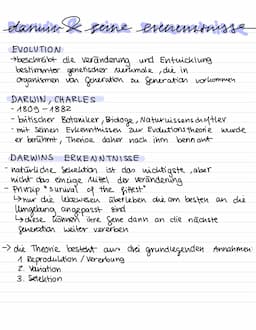 darwin & seine erkenntnisse
EVOLUTION
→beschreibt die Veränderung und Entwicklung
bestimmter genetischer Merkmale, die in
Organismen von Generation zu Generation vorkommen
DARWIN, CHARLES
- 1809 - 1882
- britischer Botaniker, Biologe, Naturwissenschaftler
- mit seinen Erkenntnissen zur Evolutionstheorie wurde
er berühmt, Theorie daher nach ihm benannt
DARWINS ERKENNTNISSE
- natürliche Selektion ist das wichtigste, aber
nicht das einzige Mittel der Veränderung
- Prinzip "survival of the fittest"
↳nur die Lebewesen überleben die am besten an die
Umgebung angepasst sind
↳diese können ihre Gene dann an die nächste
Generation weiter vererben
→ die Theorie besteht aus drei grundlegenden Annahmen:
1. Reproduktion / Vererbung
2. Variation
3. Selektion